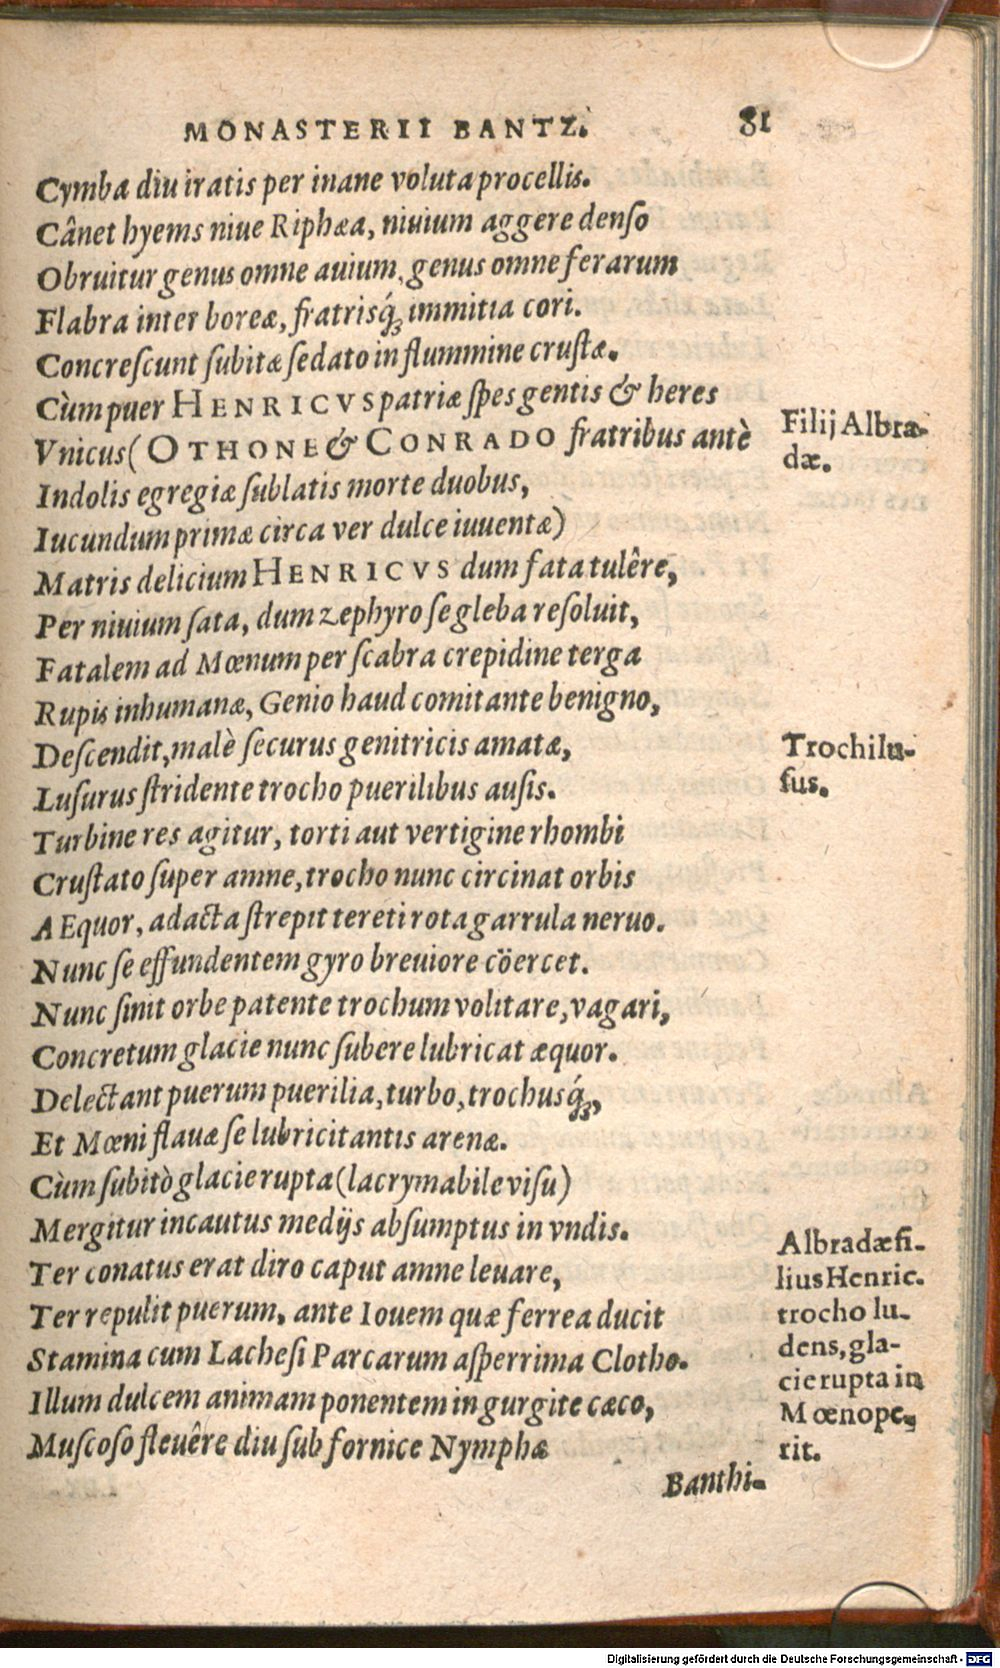 MONASTERII BANTZ. 81
Cymba diu iratis per inane voluta procellis.
Cânet hyems niue Riphæa, niuium aggere denso
Obruitur genus omne auium, genus omne ferarum
Flabra inter boreæ, fratrisq́; immitia cori.
Concrescunt subitæ sedato in flummine crustæ.
Cùm puer HENRICVS patriæ spes gentis & heres
Vnicus (OTHONE & CONRADO fratribus antè
Filij Albra-
dæ.
Indolis egregiæ sublatis morte duobus,
Iucundum primæ circa ver dulce iuuentæ)
Matris delicium HENRICVS dum fata tulêre,
Per niuium sata, dum zephyro se gleba resoluit,
Fatalem ad Mœnum per scabra crepidine terga
Rupis inhumanæ, Genio haud comitante benigno,
Descendit, malè securus genitricis amatæ,
Trochilu-
sus.
Lusurus stridente trocho puerilibus ausis.
Turbine res agitur, torti aut vertigine rhombi
Crustato super amne, trocho nunc circinat orbis
AEquor, adacta strepit tereti rota garrula neruo.
Nunc se effundentem gyro breuiore cöercet.
Nunc sinit orbe patente trochum volitare, vagari,
Concretum glacie nunc subere lubricat æquor.
Delectant puerum puerilia, turbo, trochusq́;,
Et Mœni flauæ se lubricitantis arenæ.
Cùm subitò glacie rupta (lacrymabile visu)
Mergitur incautus medijs absumptus in vndis.
Ter conatus erat diro caput amne leuare,
Ter repulit puerum, ante Iouem quæ ferrea ducit
Stamina cum Lachesi Parcarum asperrima Clotho.
Illum dulcem animam ponentem in gurgite cæco,
Muscoso fleuêre diu sub fornice Nymphæ
Albradæ fi-
lius Henric.
trocho lu-
dens, gla-
cie rupta in
Mœno pe-
rit.
Banthi-
Digitalisierung gefördert durch die Deutsche Forschungsgemeinschaft - DFG